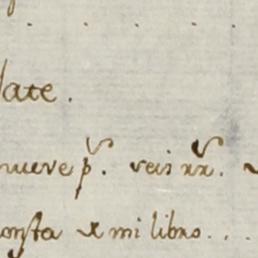 late.
nueve p^s. veis xx^s.
onsta x mi libro...